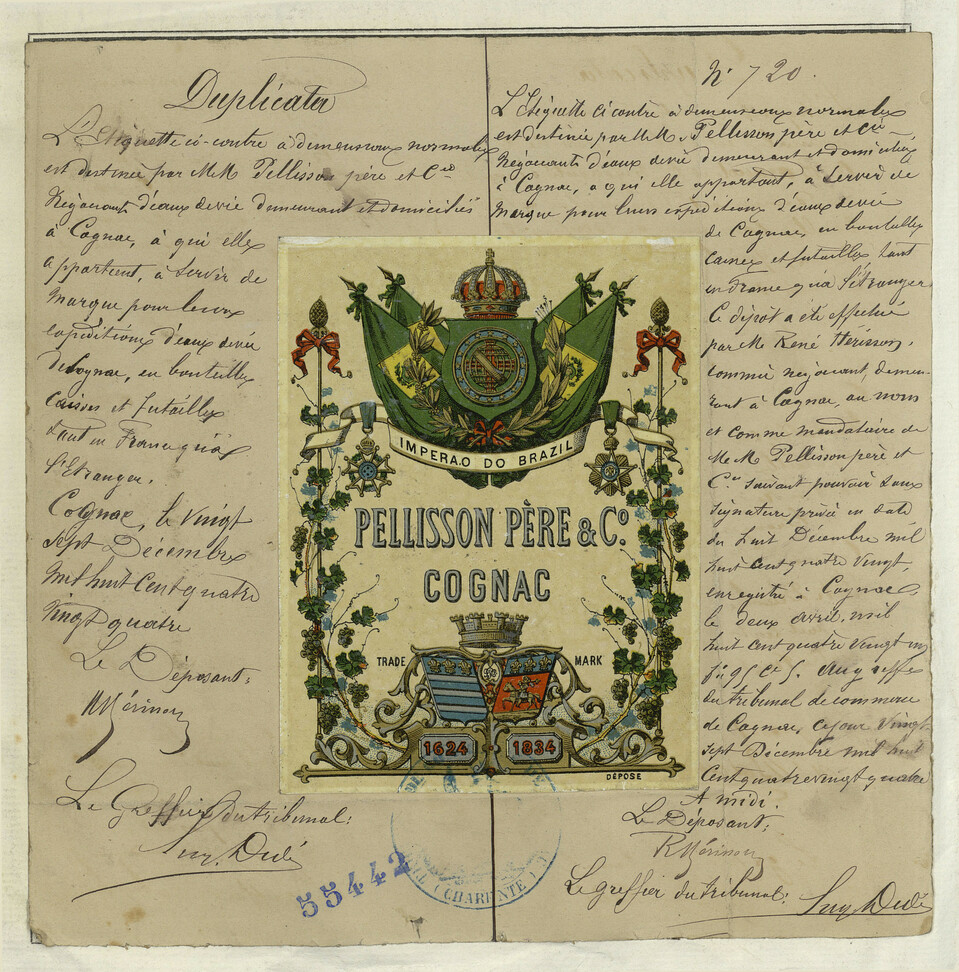 Duplicata
L'Etiquette ci-contre à dimensions normales
est destinée par M.M. Pellisson père et Cie
Négociants d'eaux de vie demeurant et domiciliés
à Cognac, à qui elle
appartient, à servir de
marque pour leurs
expéditions d'eaux de vie
de Cognac, en bouteilles
caisses et futailles
tant en France qu'à
l'Etranger.
Cognac, le vingt
sept Décembre
mil huit cent quatre
vingt quatre
Le Déposant:
R Hérisson
Le Greffier du tribunal:
N° 720.
L'Etiquette ci contre à dimensions normales
est destinée par M.M. Pellisson père et Cie
Négociants d'eaux de vie demeurant et domiciliés
à Cognac, a qui elle appartient, à servir de
marque pour leurs expéditions d'eaux de vie
de Cognac, en bouteilles
caisses et futailles tant
en France qu'à l'Etranger
Ce dépôt a été effectué
par M. René Hérisson,
commis négociant, demeu-
rant à Cognac, au nom
et comme mandataire de
M.M. Pellisson père et
Cie suivant pouvoir sous
signature privée en date
du huit Décembre mil
huit cent quatre vingt,
enregistré à Cognac,
le deux avril, mil
huit cent quatre vingt un
fo 95 Co 5. Au greffe
du tribunal de commerce
de Cognac, ce jour vingt-
sept Décembre mil huit
cent quatre vingt quatre
A midi.
Le Déposant:
R Hérisson
Le greffier du tribunal:
IMPERAO DO BRAZIL
PELLISSON PÈRE & Co.
COGNAC
TRADE MARK
1624 1834
DÉPOSÉ
(CHARENTE)
55442